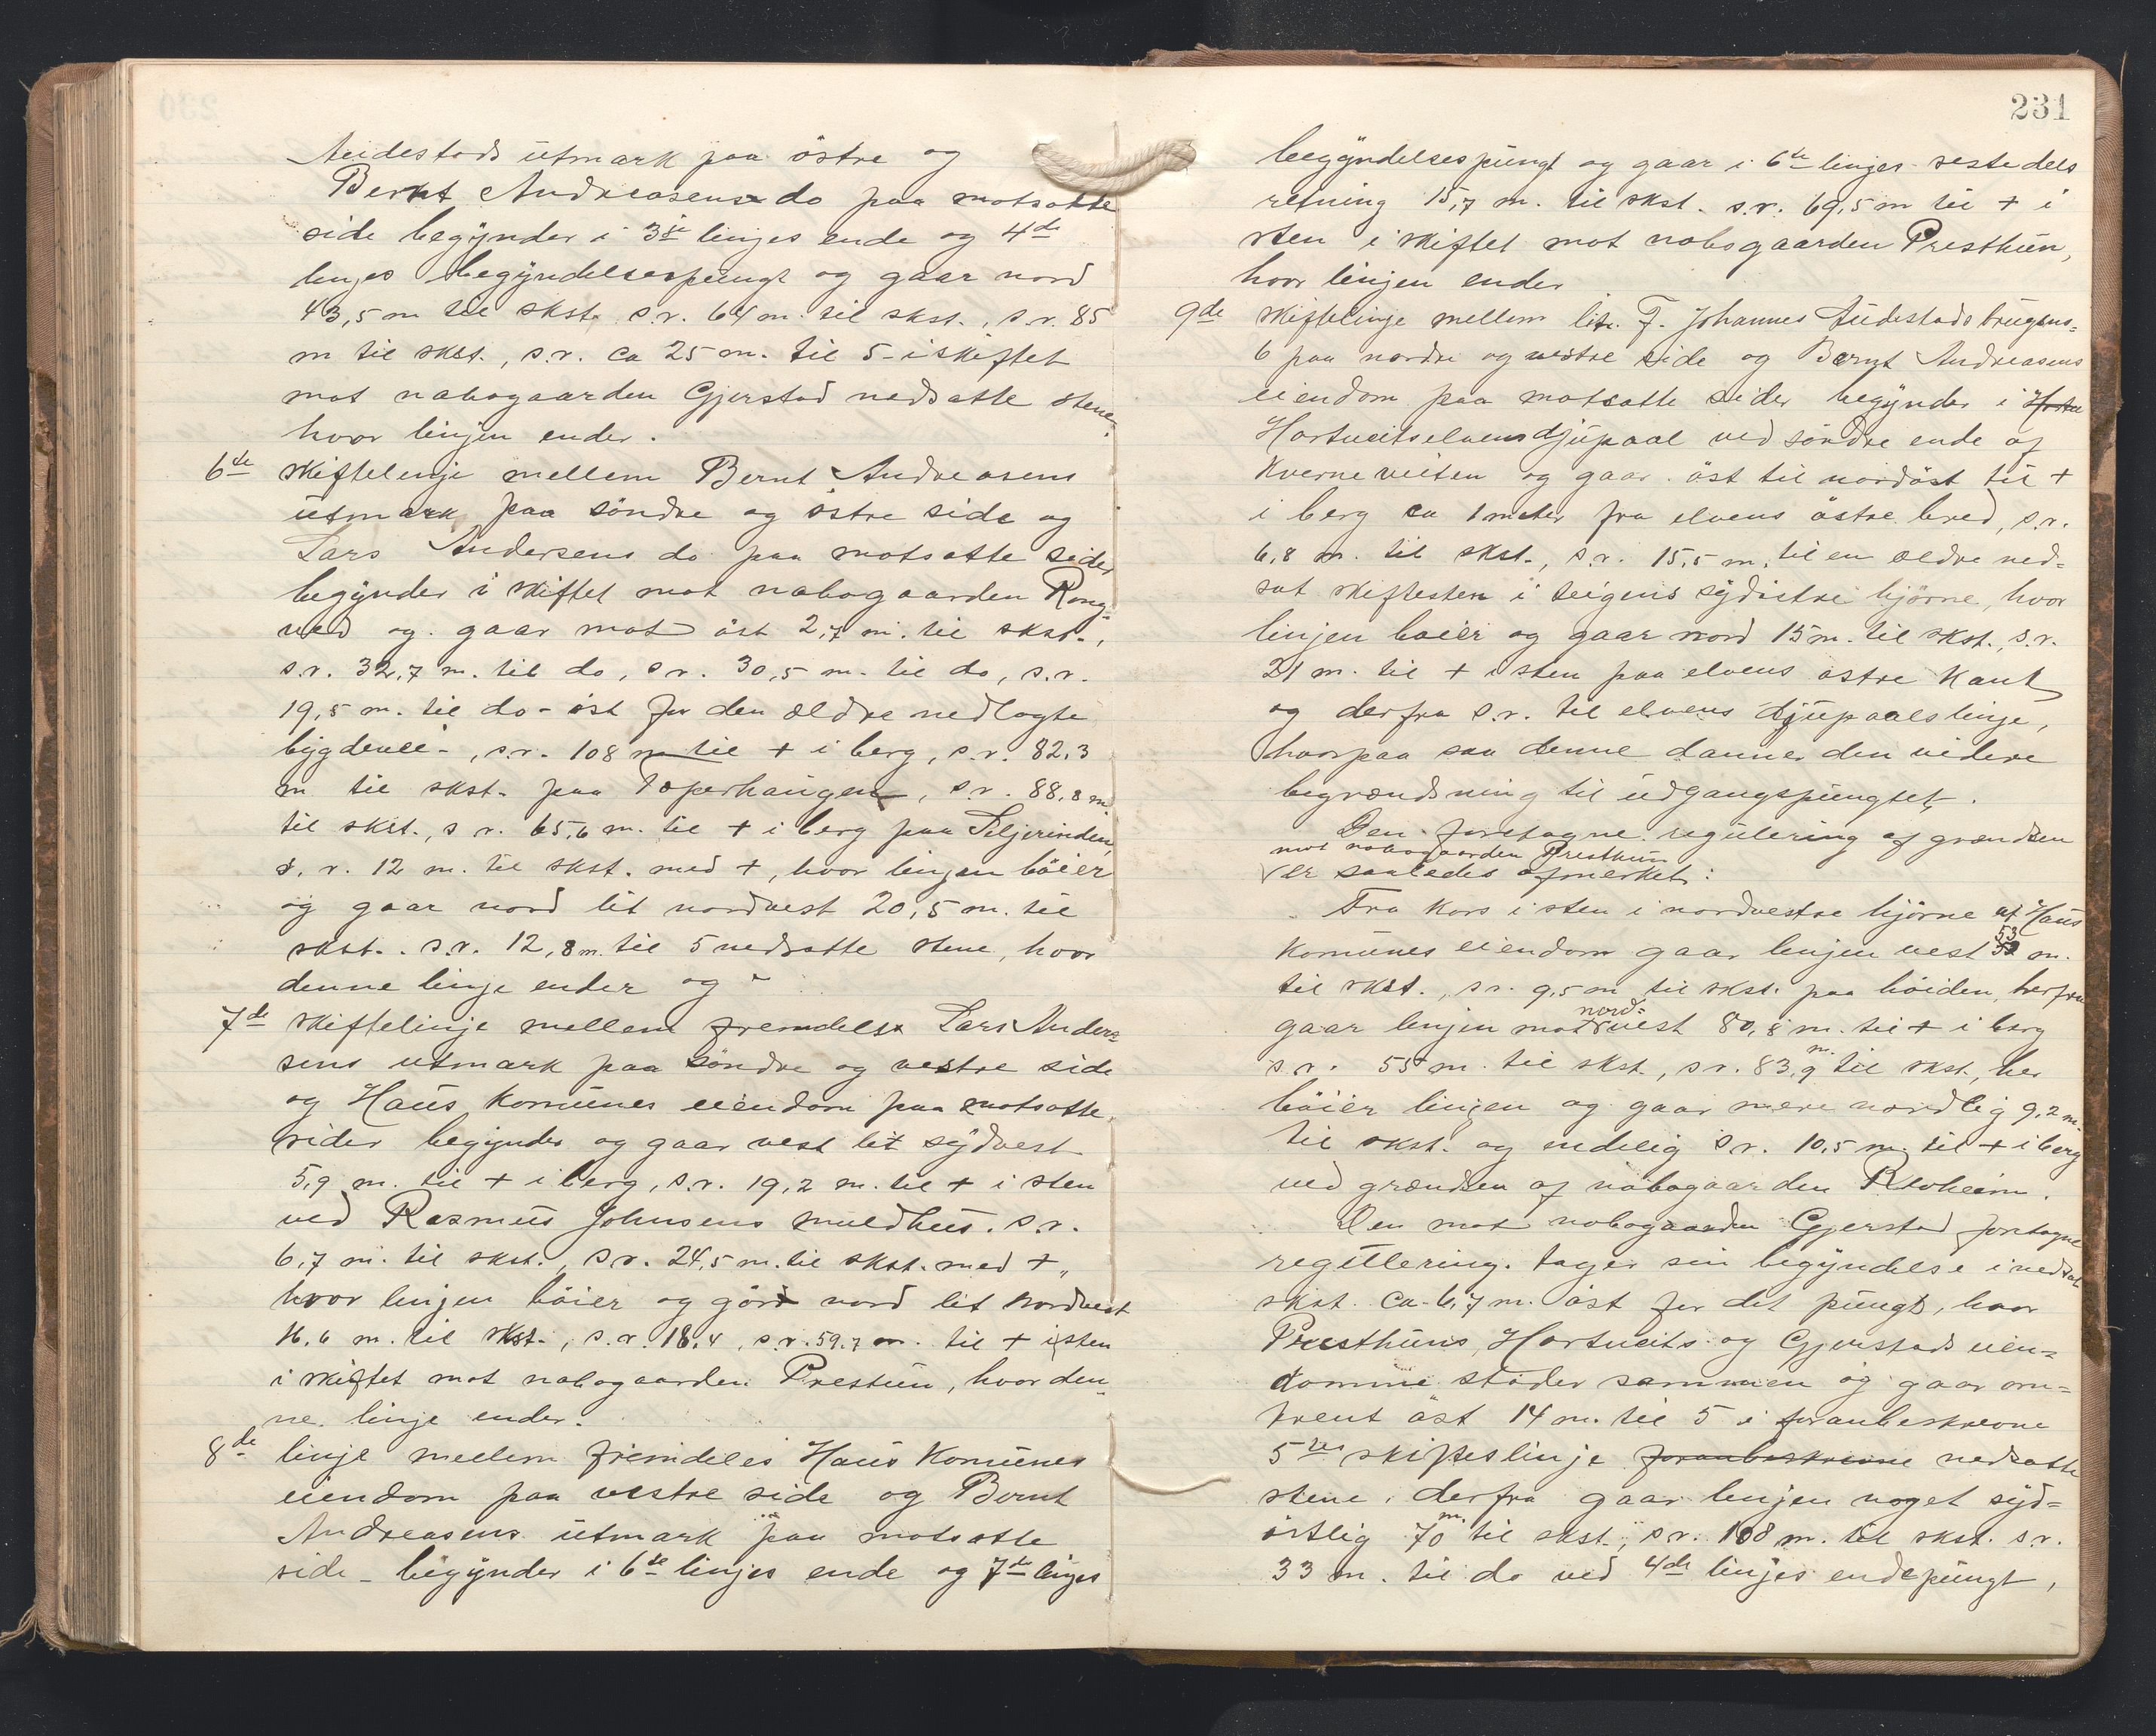 Audestads utmark paa östre og
Bernt Andreasens do paa motsatte
side begynder i 3die linjes ende og 4de
linjes begyndelsespungt og gaar nord
43,5 m til skst. s.r. 64 m. til skst., s.r. 85
m til skst., s.r. ca 25 m. til 5 i skiftet
mot nabogaarden Gjerstad nedsatte stene,
hvor linjen ender.
6te skiftelinje mellem Bernt Andreasens
utmark paa söndre og östre side og
Lars Andersens do paa motsatte sider
begynder i skiftet mot nabogaarden Rong-
ved og gaar mot öst 2,7 m. til skst.,
s.r. 32,7 m. til do, s.r. 30,5 m. til do, s.r.
19,5 m. til do - öst for den ældre nedlagte
bygdevei -, s.r. 108 m til + i berg, s.r. 82,3
m til skst. paa Toperhaugen, s.r. 88,8 m
til skst., s.r. 65,6 m. til + i berg paa Seljerinden,
s.r. 12 m. til skst. med +, hvor linjen böier
og gaar nord lit nordvest 20,5 m. til
skst. s.r. 12,8 m. til 5 nedsatte stene, hvor
denne linje ender og
7de skiftelinje mellem fremdeles Lars Ander=
sens utmark paa söndre og vestre side
og Haus komunes eiendom paa motsatte
sider begynder og gaar vest lit sydvest
5,9 m. til + i berg, s.r. 19,2 m. til + i sten
ved Rasmus Johnsens muldhus. s.r.
6,7 m. til skst., s.r. 24,5 m. til skst. med +,
hvor linjen böier og går nord lit nordvest
16,6 m. til skst., s.r. 18,4, s.r. 59,7 m. til + i sten
i skiftet mot nabogaarden Prestun, hvor den-
ne linje ender.
8de linje mellem fremdeles Haus Komunes
eiendom paa vestre side og Bernt
Andreasens utmark paa motsatte
side - begynder i 6te linjes ende og 7de linjes
231
begyndelsespungt og gaar i 6te linjes sestedels
retning 15,7 m. til skst. s.r. 69,5 m til + i
sten i skiftet mot nabogaarden Presthun,
hvor linjen ender
9de skiftelinje mellem litr. F. Johannes Audestads brugsno=
6 paa nordre og vestre side og Bernt Andreasens
eiendom paa motsatte sider begynder i
Hartveitselvens djupaal ved söndre ende af
Kverneveiten og gaar öst til nordöst til +
i berg ca 1 meter fra elvens östre bred, s.r.
6,8 m. til skst., s.r. 15,5 m. til en ældre ned=
sat skiftesten i teigens sydöstre hjörne, hvor
linjen böier og gaar nord 15 m. til skst., s.r.
21 m. til + i sten paa elvens östre kant
og derfra s.r. til elvens djupaals linje,
hvorpaa saa denne danner den videre
begrændsning til udgangspungtet.
Den foretagne regulering af grændsen
mot nabogaarden Presthun
er saaledes afmerket:
Fra kors i sten i nordvestre hjörne af Haus
komunes eiendom gaar linjen vest 53 m.
til skst., s.r. 9,5 m til skst. paa höiden, herfra
gaar linjen mot nord=vest 80,8 m. til + i berg
s.r. 55 m. til skst., s.r. 83,9 m. til skst., her
böier linjen og gaar mere nordlig 9,2 m.
til skst. og endelig s.r. 10,5 m. til + i berg
ved grændsen af nabogaarden Revheim.
Den mot nabogaarden Gjerstad foretagne
regulering tager sin begyndelse i nedsat
skst. ca. 6,7 m. öst for det pungt, hvor
Presthuns, Hartveits og Gjerstads eien=
domme stöder sammen og gaar om=
trent öst 14 m. til 5 i foranbeskrevne
5tes skifteslinje foranbeskrevne nedsatte
stene, derfra gaar linjen noget syd=
östlig 70 m. til skst., s.r. 108 m. til skst. s.r.
33 m. til do ved 4de linjes endepungt,